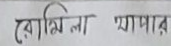 রোমিলা থাপার